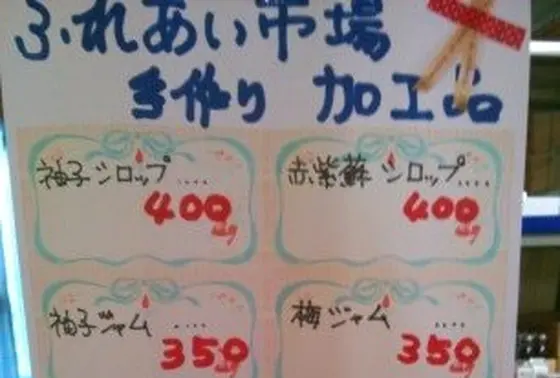 ふれあい市場
手作り 加工品
袖子シロップ....
400
赤紫蘇シロップ....
400
袖子ジャム ....
350
梅ジャム ....
350